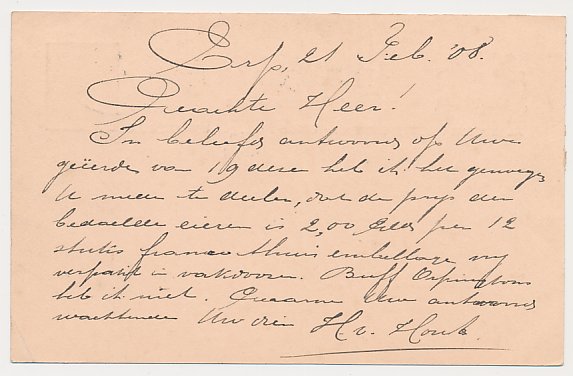 Erp, 21 Feb. '08.
Geachte Heer!
In beleefd antwoord op Uwe
geëerde van 19 dezer heb ik het genoegen
U mede te deelen, dat de prijs der
bedoelde eieren is 2,00 Gld per 12
stuks franco thuis emballage vrij
verpakt in
Buff Orpingtons
heb ik niet. Gaarne Uw antwoord
wachtende Uw dr
H. v. Hout.